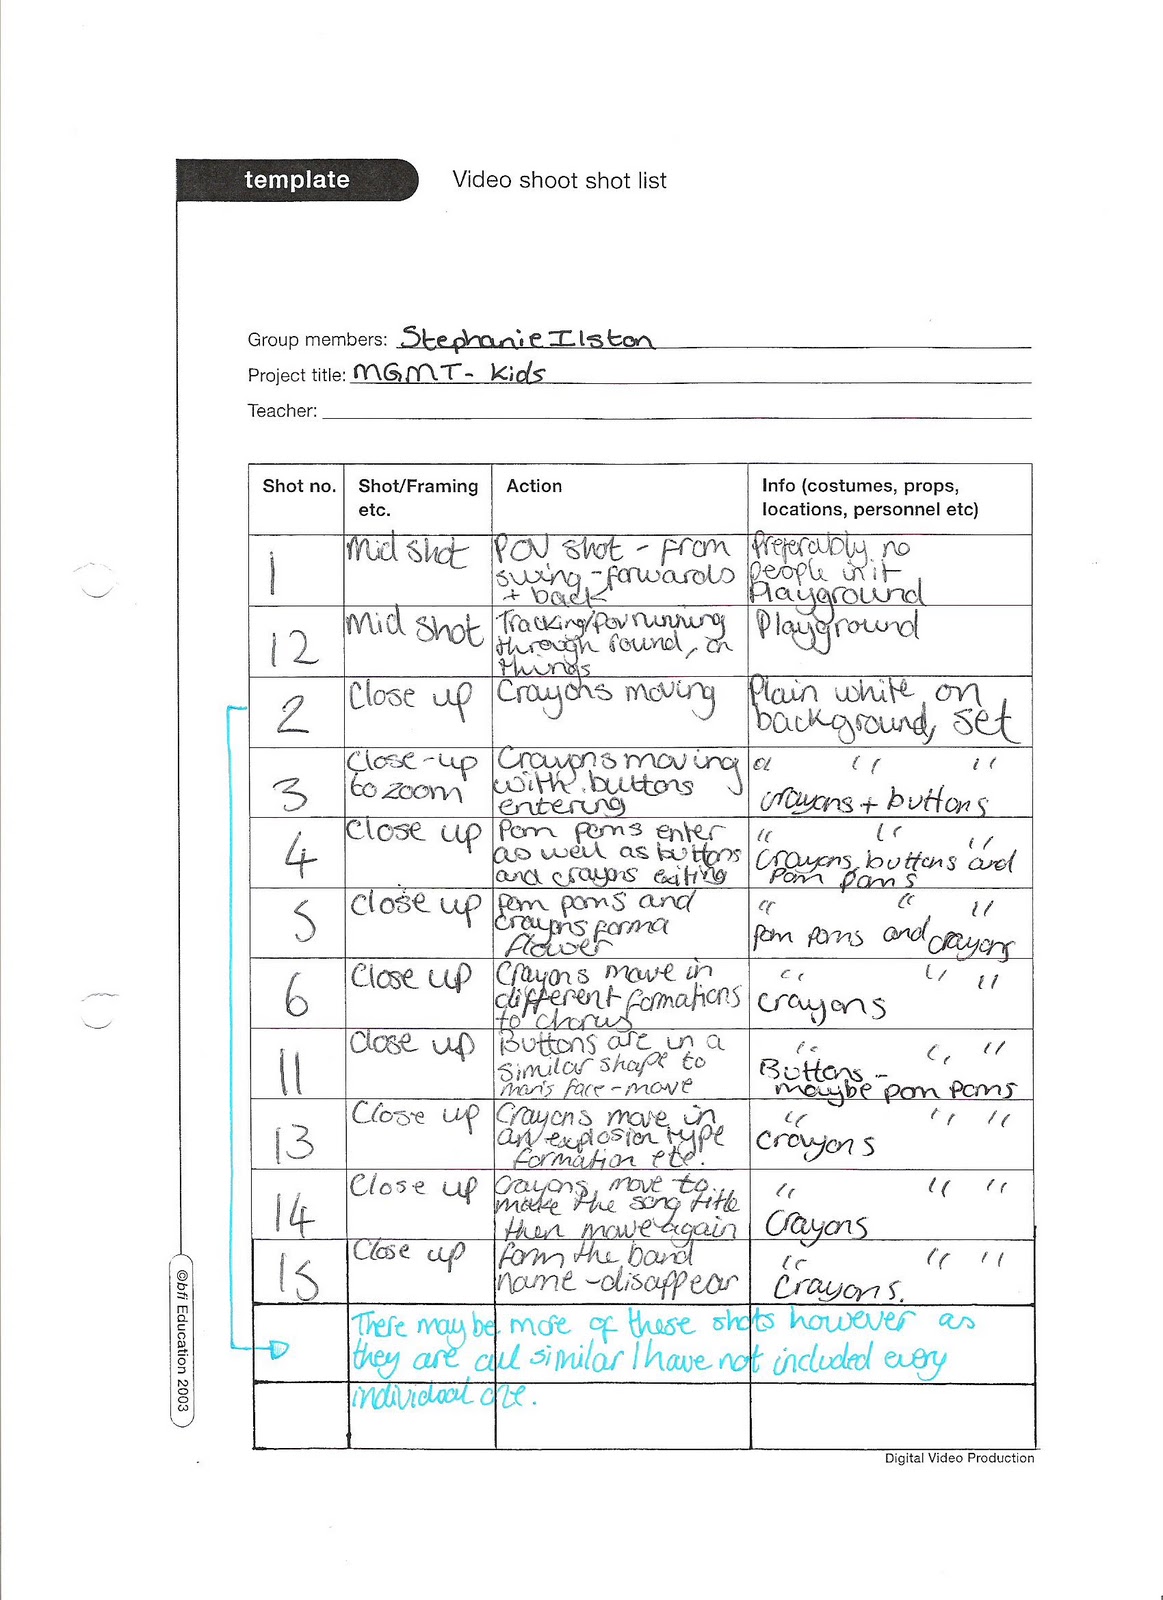 template
Video shoot shot list
Group members: Stephanie Ilston
Project title: MGMT - Kids
Teacher:
Shot no.
Shot/Framing
etc.
Action
Info (costumes, props,
locations, personnel etc)
1
Mid shot
POV shot - from
swing - forwards
+ back
Preferably no
people in it
Playground
12
Mid shot
Tracking/pov running
through round, on
things
Playground
2
Close up
Crayons moving
Plain white on
background, set
3
Close-up
to zoom
Crayons moving
with buttons
entering
" " "
crayons + buttons
4
Close up
Pom poms enter
as well as buttons
and crayons exiting
" " "
Crayons, buttons and
Pom poms
5
Close up
Pom poms and
crayons form a
flower
" " "
Pom poms and crayons
6
Close up
Crayons move in
different formations
to chorus
" " "
crayons
11
Close up
Buttons are in a
similar shape to
man's face - move
" " "
Buttons -
maybe pom poms
13
Close up
Crayons move in
an explosion type
formation etc.
" " "
crayons
14
Close up
Crayons move to
make the song title
then move again
" " "
Crayons
15
Close up
form the band
name - disappear
" " "
Crayons.
There may be more of these shots however as
they are all similar I have not included every
individual one.
©bfi Education 2003
Digital Video Production